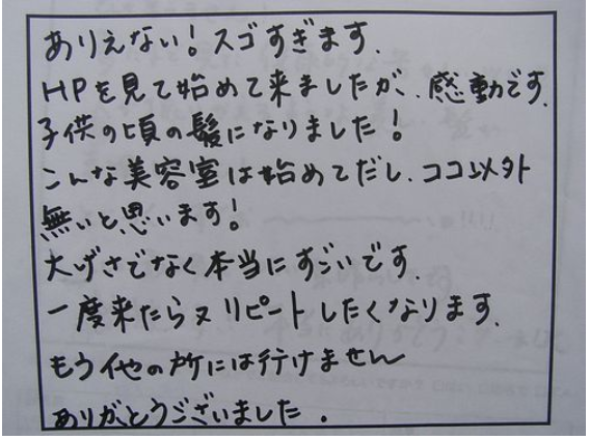 ありえない！スゴすぎます.
HPを見て始めて来ましたが、感動です.
子供の頃の髪になりました！
こんな美容室は始めてだし、ココ以外
無いと思います！
大げさでなく本当にすごいです.
一度来たらヌリピートしたくなります.
もう他の所には行けません
ありがとうございました.